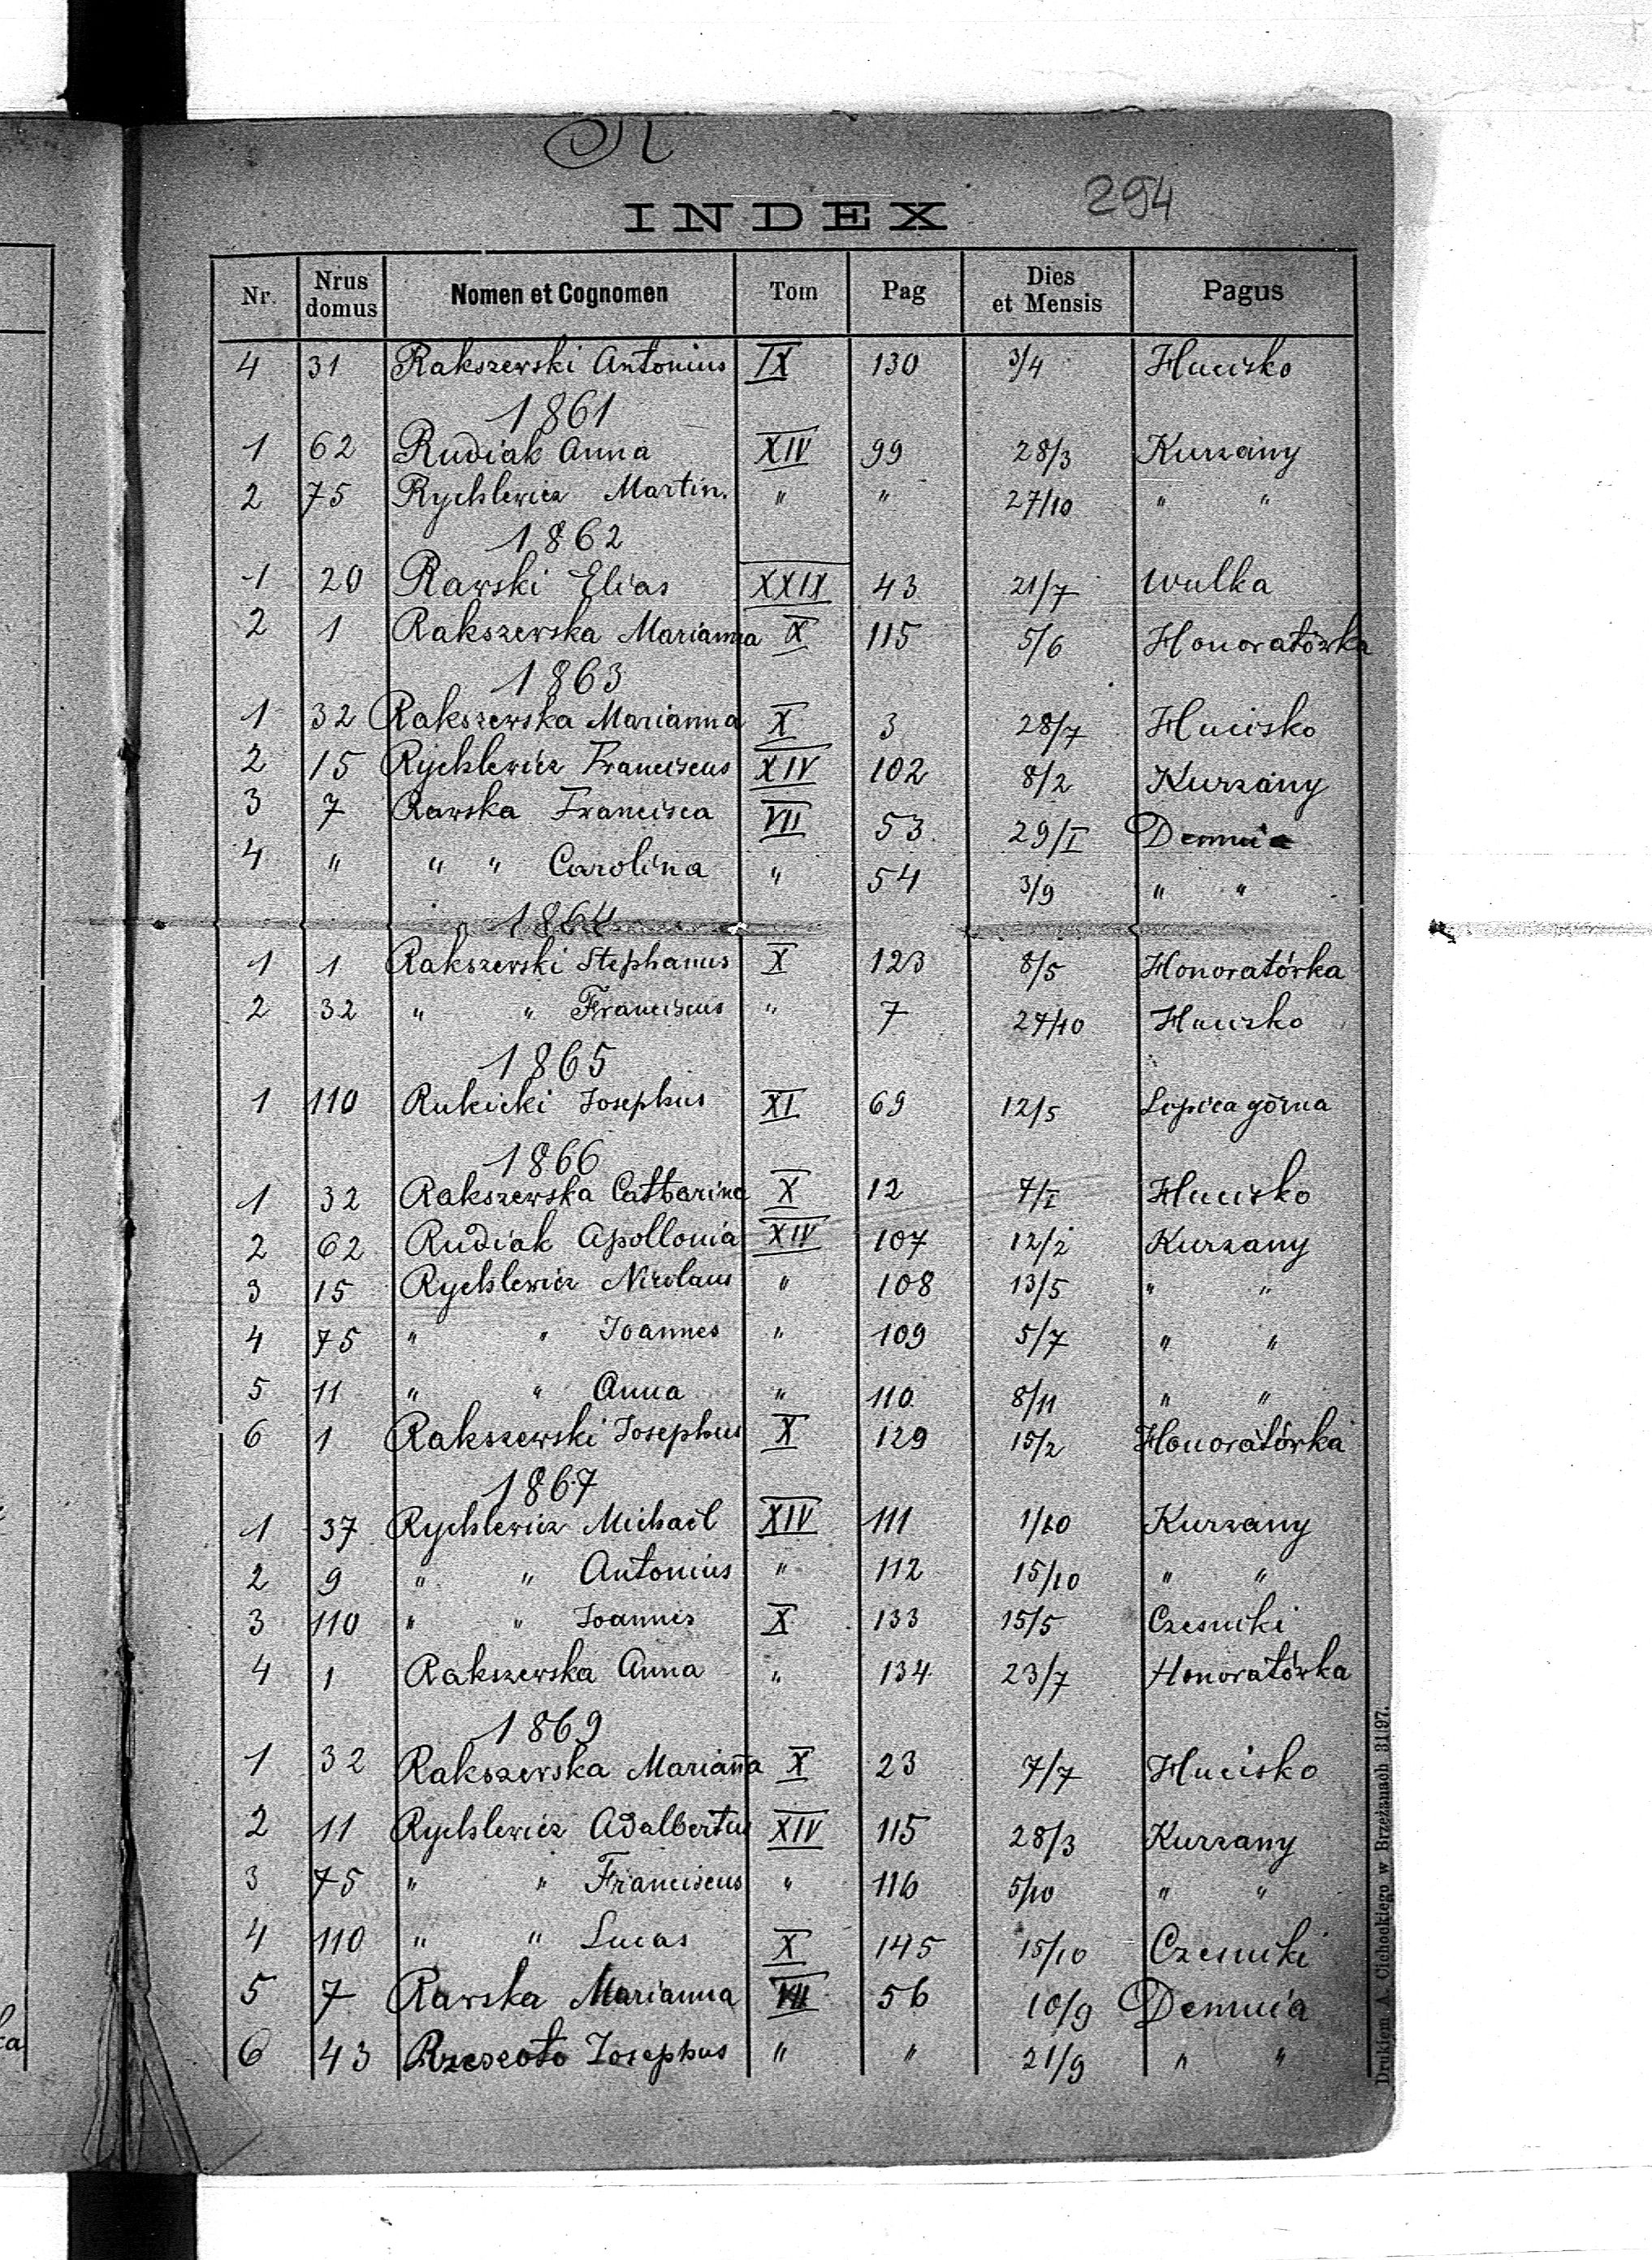 R
294
INDEX
Nr. Nrus domus Nomen et Cognomen Tom Pag Dies et Mensis Pagus
4 31 Rakszewski Antonius IX 130 3/4 Hucisko
1861
1 62 Rudiak Anna XIV 99 28/3 Kurzany
2 75 Rychlewicz Martin. " " 27/10 " "
1862
1 20 Rawski Elias XXIX 43 21/7 Wulka
2 1 Rakszewska Marianna X 115 5/6 Honoratówka
1863
1 32 Rakszewska Marianna X 3 28/7 Hucisko
2 15 Rychlewicz Franciscus XIV 102 8/2 Kurzany
3 7 Rawska Francisca VII 53 29/I Demnia
4 " " " Carolina " 54 3/9 " "
1864
1 1 Rakszewski Stephanus X 123 8/5 Honoratówka
2 32 " " Franciscus " 7 27/10 Hucisko
1865
1 110 Rukicki Josephus XI 69 12/5 Lipica górna
1866
1 32 Rakszewska Catharina X 12 7/I Hucisko
2 62 Rudiak Apollonia XIV 107 12/2 Kurzany
3 15 Rychlewicz Nicolaus " 108 13/5 " "
4 75 " " Joannes " 109 5/7 " "
5 11 " " Anna " 110 8/11 " "
6 1 Rakszewski Josephus X 129 15/2 Honoratówka
1867
1 37 Rychlewicz Michaël XIV 111 1/10 Kurzany
2 9 " " Antonius " 112 15/10 " "
3 110 " " Joannes X 133 15/5 Czesniki
4 1 Rakszewska Anna " 134 23/7 Honoratówka
1869
1 32 Rakszewska Marianna X 23 7/7 Hucisko
2 11 Rychlewicz Adalbertus XIV 115 28/3 Kurzany
3 75 " " Franciscus " 116 5/10 " "
4 110 " " Lucas X 145 15/10 Czesniki
5 7 Rawska Marianna VII 56 10/9 Demnia
6 43 Rzeszoto Josephus " " 21/9 " "
Drukiem A. Cichockiego w Brzeżanach 31|97.
ka